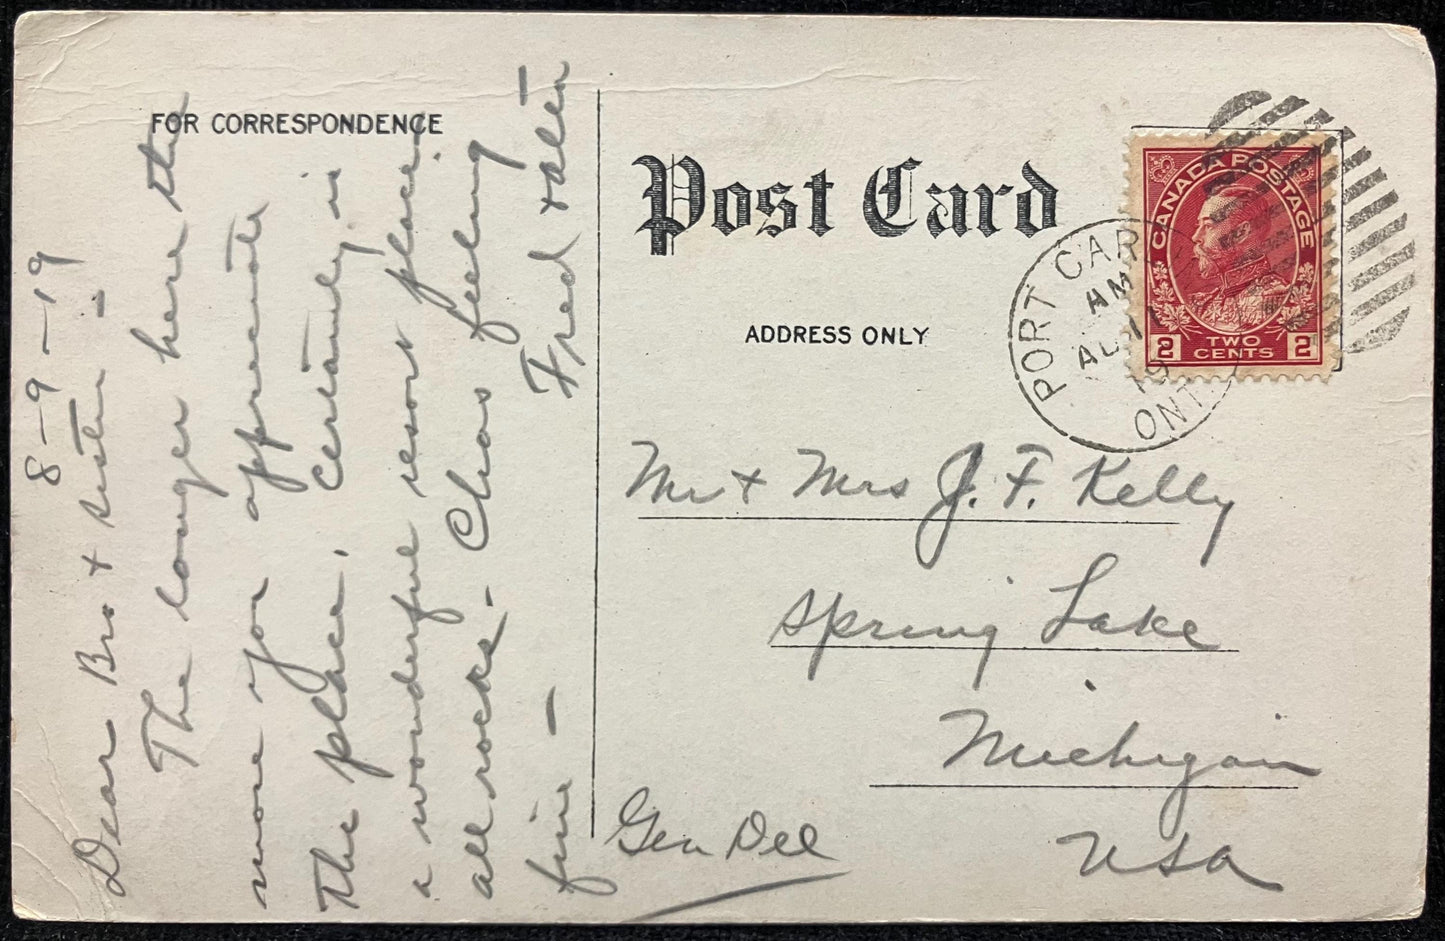 FOR CORRESPONDENCE
8-9-19
Dear Bro + sister -
The longer here the
more you appreciate
the place. Certainly is
a wonderful resort place,
all rocks - Chas feeling
fine -
Fred +
Post Card
ADDRESS ONLY
CANADA POSTAGE
2 TWO CENTS 2
PORT CAR
AM
AU 11
19
ONT
Mr + Mrs J. F. Kelly
Spring Lake
Michigan
USA
Gen Del